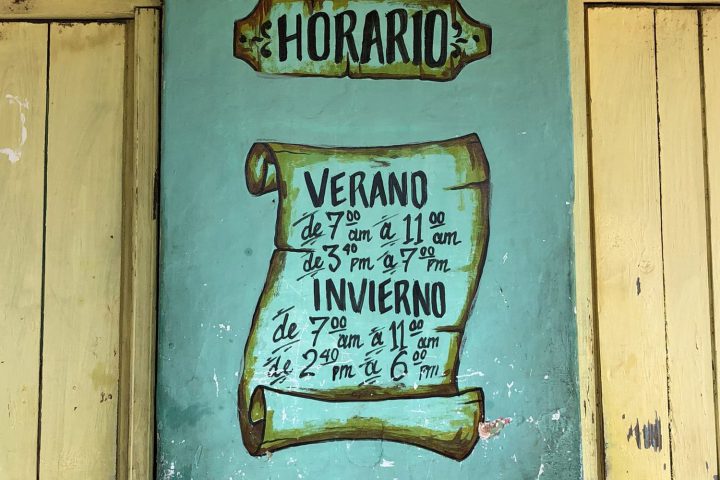 HORARIO
VERANO
de 7⁰⁰ am a 11⁰⁰ am
de 3⁴⁰ pm a 7⁰⁰ pm
INVIERNO
de 7⁰⁰ am a 11⁰⁰ am
de 2⁴⁰ pm a 6⁰⁰ pm